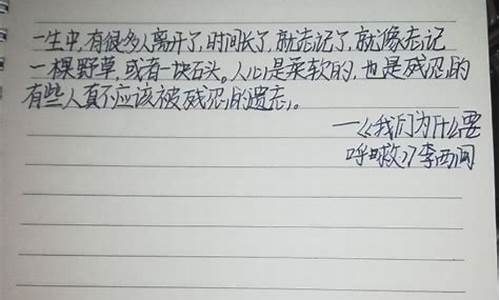 一生中,有很多人离开了,时间长了,就忘记了,就像忘记
一棵野草,或者一块石头。人心是柔软的,也是残忍的
有些人真不应该被残忍的遗忘。
—《我们为什么要
呼救》李西闽